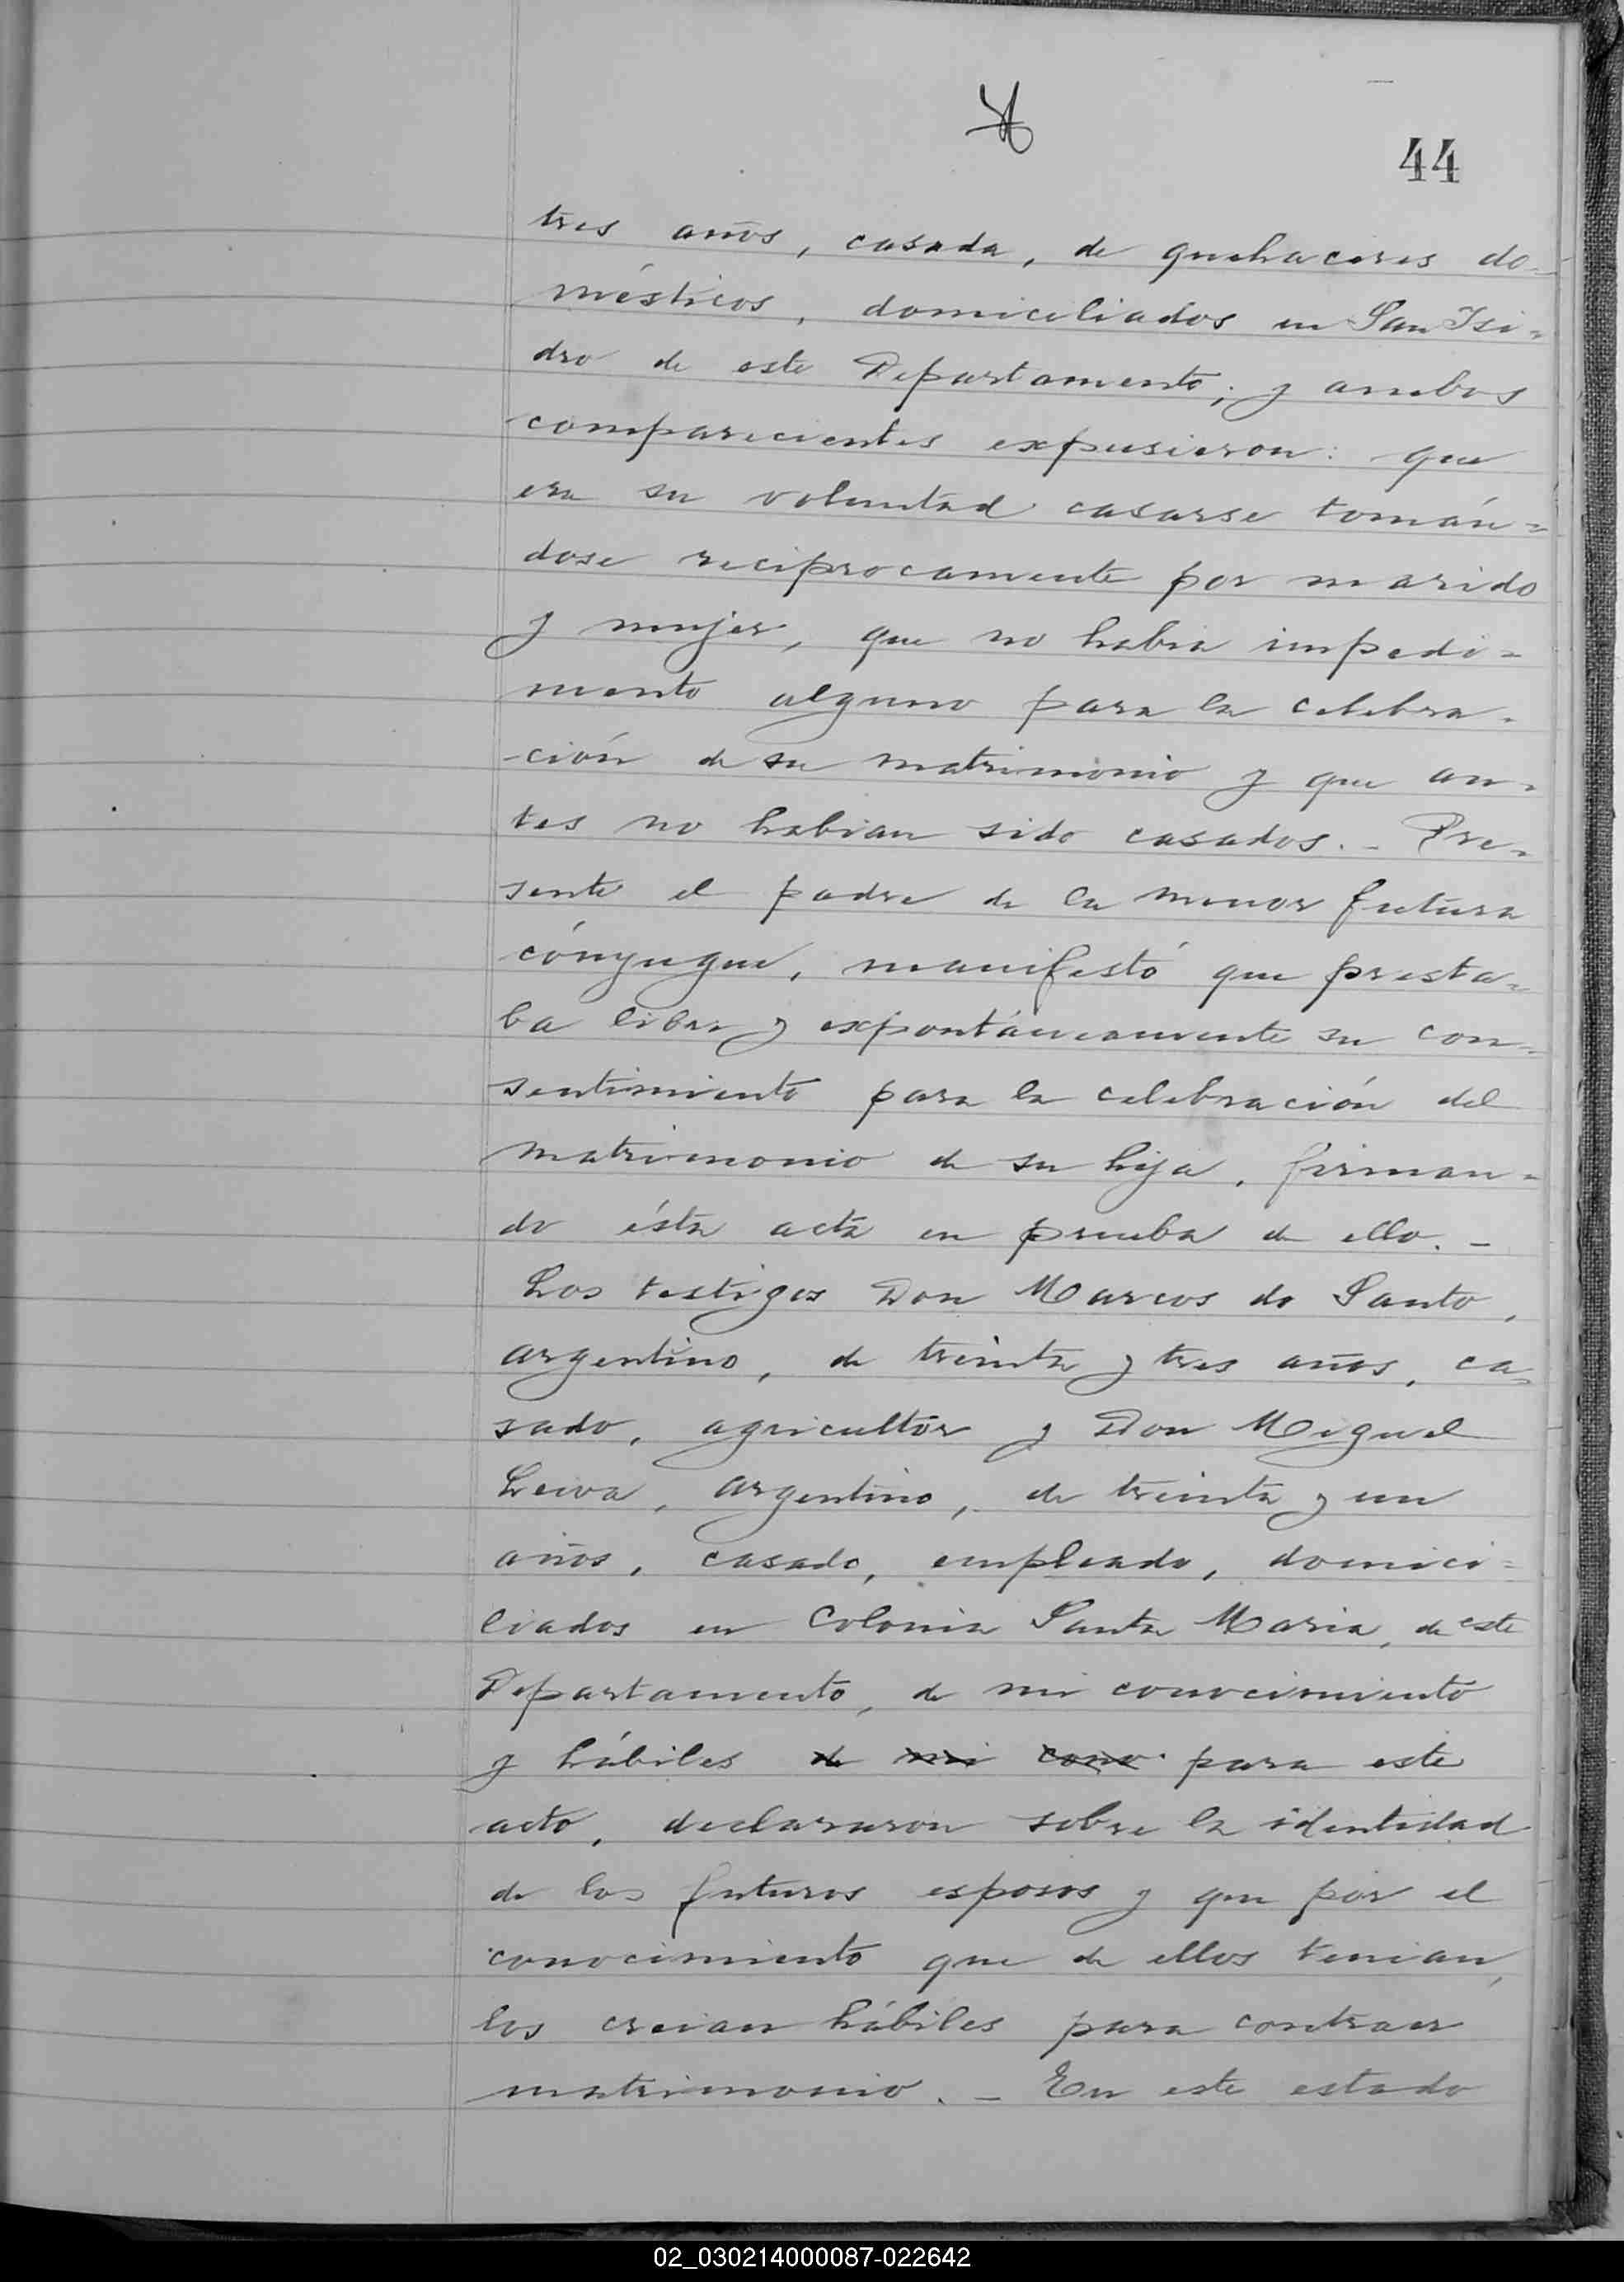 44
tres años, casada, de quehaceres do-
mésticos, domiciliados en San Isi-
dro de este Departamento; y ambos
comparecientes expusieron: que
era su voluntad casarse tomán=
dose reciprocamente por marido
y mujer, que no habia impedi=
mento alguno para la celebra-
-ción de su matrimonio y que an-
tes no habian sido casados. - Pre-
sente el padre de la menor futura
cónyugue, manifestó que presta-
ba libre y expontáneamente su con-
sentimiento para la celebración del
matrimonio de su hija, firman=
do ésta acta en prueba de ello. -
Los testigos Don Marcos do Santo,
argentino, de treinta y tres años, ca-
sado, agricultor y Don Miguel
Leiva, argentino, de treinta y un
años, casado, empleado, domici=
liados en Colonia Santa Maria, de este
Departamento, de mi conocimiento
y hábiles de mi cono para este
acto, declararon sobre la identidad
de los futuros esposos y que por el
conocimiento que de ellos tenian,
los creian hábiles para contraer
matrimonio. - En este estado
02_030214000087-022642